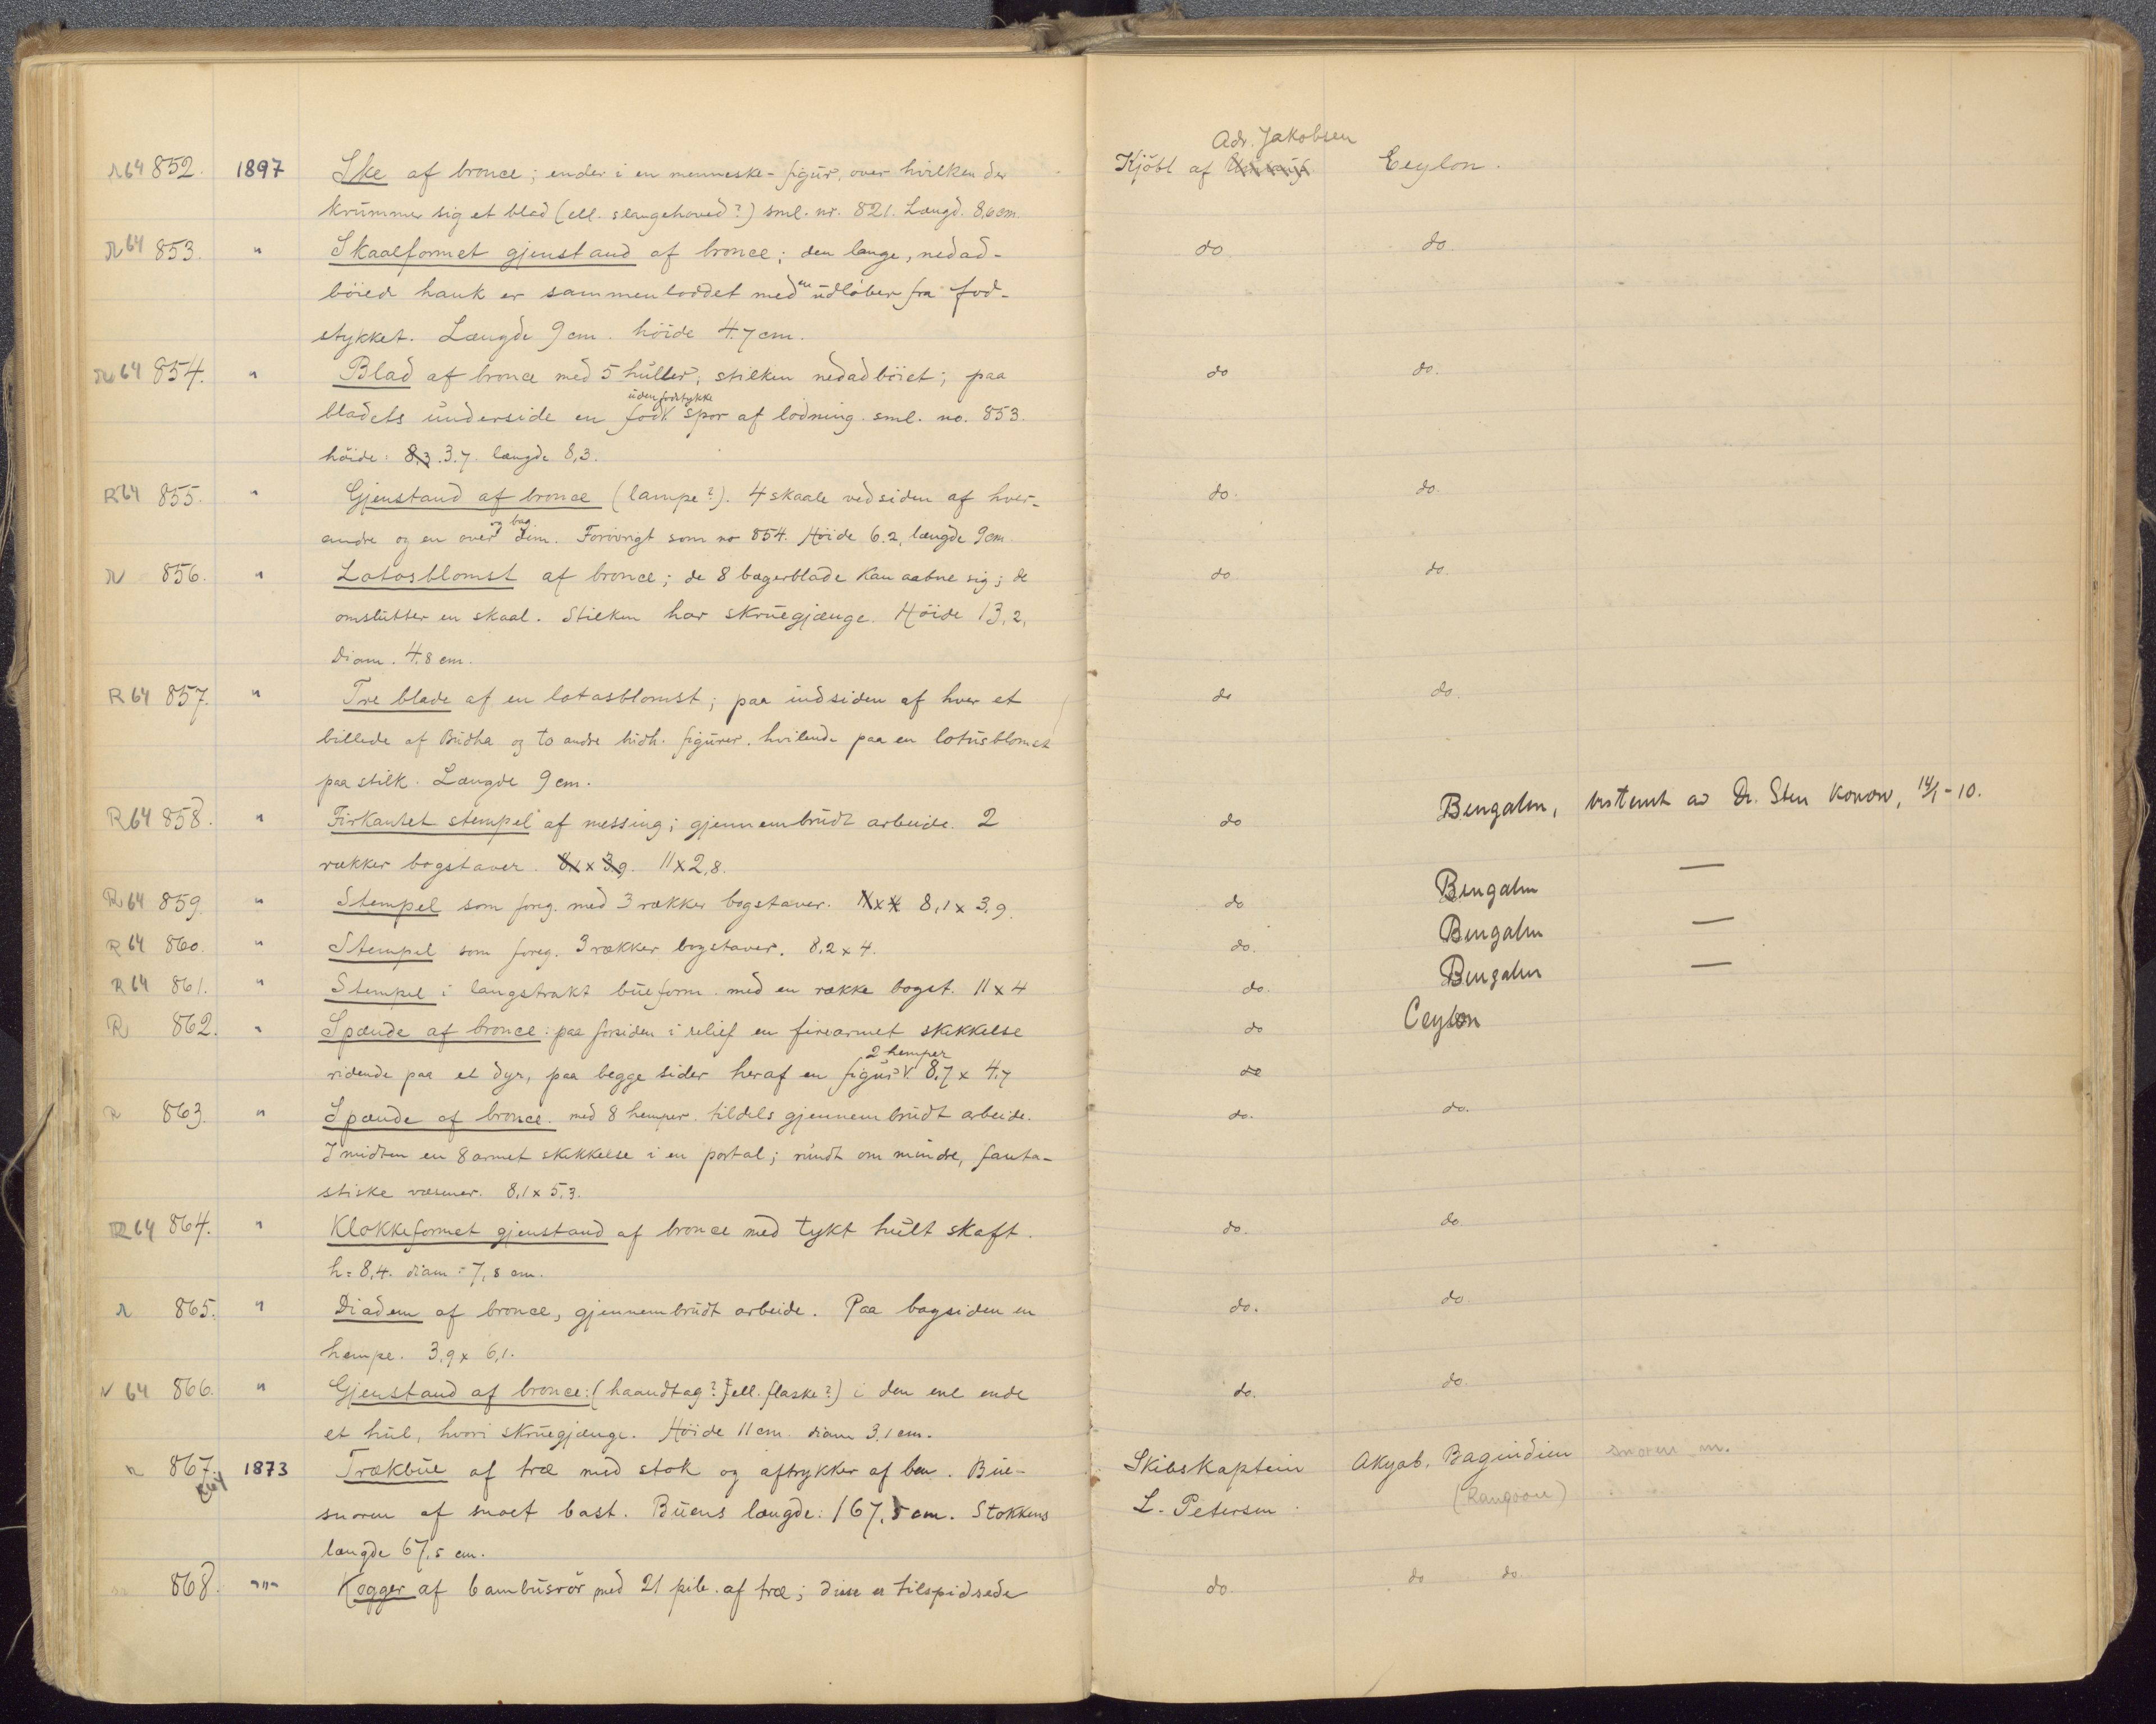 Adr. Jakobsen
R64 852. 1897 Ske af bronce; ender i en menneske-figur, over hvilken der Kjöbt af Ceylon.
krummer sig et blad (ell. slangehoved?) sml. nr. 821. Længd. 8,6 cm.
R64 853. " Skaalformet gjenstand af bronce; den lange, nedad- do. do.
böied hank er sammenloddet med en udlöber fra fod-
stykket. Længde 9 cm. höide 4.7 cm.
R64 854. " Blad af bronce med 5 huller; stilken nedadböiet; paa do do.
uden fodstykke
bladets underside en fod V. spor af lodning. sml. no. 853.
höide: 8,3. 3.7. længde 8,3.
R64 855. " Gjenstand af bronce (lampe?). 4 skaale ved siden af hver- do. do.
og bag
andre og en over dem. Forövrigt som no 854. Höide 6.2, længde 9 cm.
R 856. " Lotosblomst af bronce; de 8 bægerblade kan aabne sig; de do do.
omslutter en skaal. Stilken har skruegjænge. Höide 13,2,
Diam. 4.8 cm.
R64 857. " Tre blade af en lotosblomst; paa indsiden af hver et do do.
billede af Budha og to andre budh. figurer. hvilende paa en lotusblomst
paa stilk. Længde 9 cm.
R64 858. " Firkantet stempel af messing; gjennembrudt arbeide. 2 do Bengalen, bestemt av Dr. Sten Konow, 14/1-10.
rækker bogstaver. 8,1 x 3,9. 11 x 2,8.
R64 859. " Stempel som foreg. med 3 rækker bogstaver. 11 x 4 8,1 x 3,9. do Bengalen —
R64 860. " Stempel som foreg. 3 rækker bogstaver. 8,2 x 4. do. Bengalen —
R64 861. " Stempel i langstrakt bueform. med en række bogst. 11 x 4 do. Bengalen —
R 862. " Spænde af bronce: paa forsiden i relief en firearmet skikkelse do Ceylon
2 hemper
ridende paa et dyr, paa begge sider heraf en figur V. 8,7 x 4,7 do
R 863. " Spænde af bronce. med 8 hemper. tildels gjennembrudt arbeide. do. do.
I midten en 8 armet skikkelse i en portal; rundt om mindre, fanta-
stiske væsener. 8,1 x 5,3.
R64 864. " Klokkeformet gjenstand af bronce med tykt hult skaft. do. do
h = 8,4. diam = 7,8 cm.
R 865. " Diadem af bronce, gjennembrudt arbeide. Paa bagsiden en do. do.
hempe. 3,9 x 6,1.
R 64 866. " Gjenstand af bronce: (haandtag? ell. flaske?) i den ene ende do. do.
et hul, hvori skruegjænge. Höide 11 cm. diam 3,1 cm.
R 867. 1873 Trækbue af træ med stok og aftrykker af ben. Bue- Skibskaptein Akyab, Bagindien
R64 snoren af snoet bast. Buens længde: 167,5 cm. Stokkens L. Petersen. (Rangoon)
længde 67,5 cm.
868. "" Kogger af bambusrör med 21 pile af træ; disse er tilspidsede do. do do.